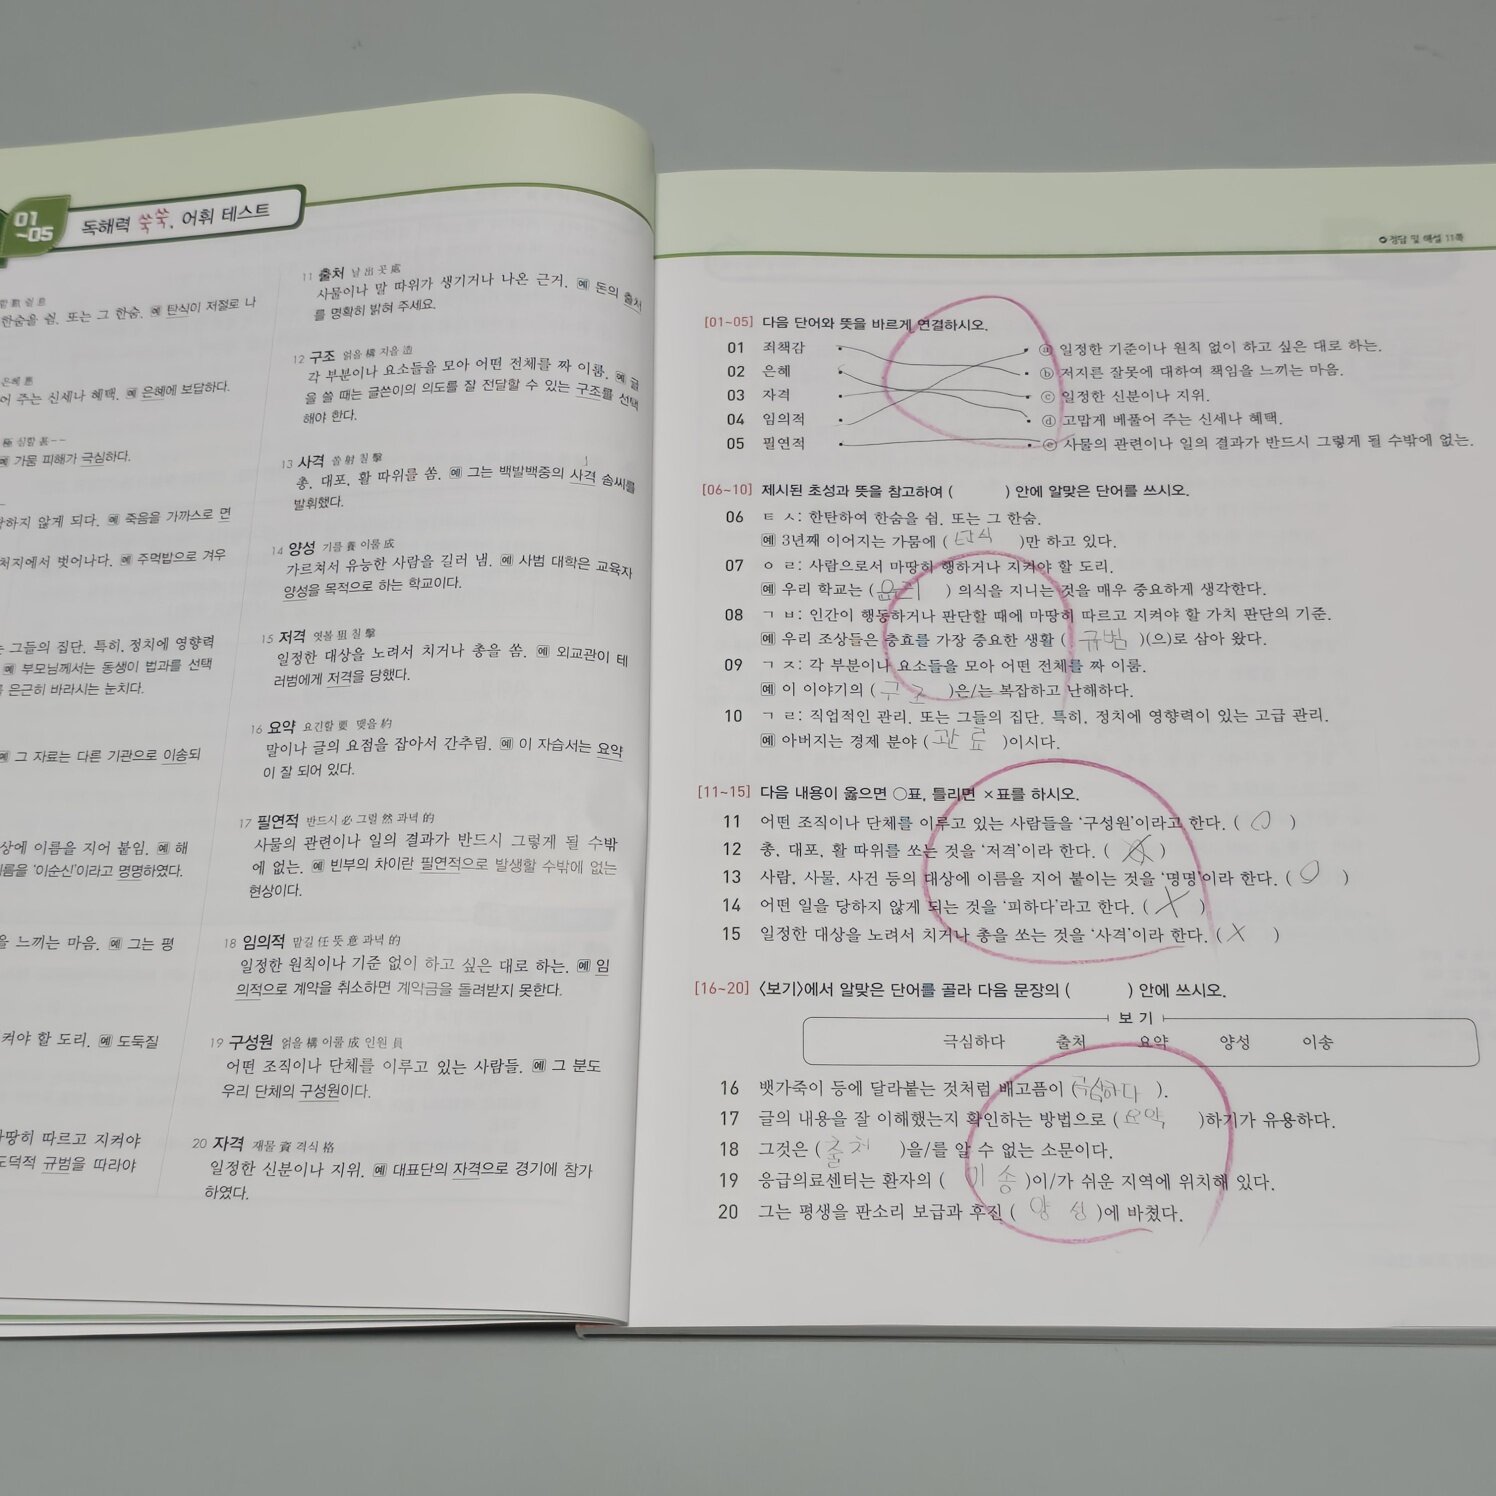 01
~05
독해력 쑥쑥, 어휘 테스트
한숨을 쉼. 또는 그 한숨. 예 탄식이 저절로 나
은혜 惠
어 주는 신세나 혜택. 예 은혜에 보답하다.
예 가뭄 피해가 극심하다.
하지 않게 되다. 예 죽음을 가까스로 면
처지에서 벗어나다. 예 주먹밥으로 겨우
그들의 집단. 특히, 정치에 영향력
예 부모님께서는 동생이 법과를 선택
은근히 바라시는 눈치다.
예 그 자료는 다른 기관으로 이송되
상에 이름을 지어 붙임. 예 해
름을 '이순신'이라고 명명하였다.
을 느끼는 마음. 예 그는 평
켜야 할 도리. 예 도둑질
땅히 따르고 지켜야
도덕적 규범을 따라야
11 출처 날 出 곳 處
사물이나 말 따위가 생기거나 나온 근거. 예 돈의 출처
를 명확히 밝혀 주세요.
12 구조 얽을 構 지을 造
각 부분이나 요소들을 모아 어떤 전체를 짜 이룸. 예 글
을 쓸 때는 글쓴이의 의도를 잘 전달할 수 있는 구조를 선택
해야 한다.
13 사격 쏠 射 칠 擊
총, 대포, 활 따위를 쏨. 예 그는 백발백중의 사격 솜씨를
발휘했다.
14 양성 기를 養 이룰 成
가르쳐서 유능한 사람을 길러 냄. 예 사범 대학은 교육자
양성을 목적으로 하는 학교이다.
15 저격 엿볼 狙 칠 擊
일정한 대상을 노려서 치거나 총을 쏨. 예 외교관이 테
러범에게 저격을 당했다.
16 요약 요긴할 要 맺을 約
말이나 글의 요점을 잡아서 간추림. 예 이 자습서는 요약
이 잘 되어 있다.
17 필연적 반드시 必 그럴 然 과녁 的
사물의 관련이나 일의 결과가 반드시 그렇게 될 수밖
에 없는. 예 빈부의 차이란 필연적으로 발생할 수밖에 없는
현상이다.
18 임의적 맡길 任 뜻 意 과녁 的
일정한 원칙이나 기준 없이 하고 싶은 대로 하는. 예 임
의적으로 계약을 취소하면 계약금을 돌려받지 못한다.
19 구성원 얽을 構 이룰 成 인원 員
어떤 조직이나 단체를 이루고 있는 사람들. 예 그 분도
우리 단체의 구성원이다.
20 자격 재물 資 격식 格
일정한 신분이나 지위. 예 대표단의 자격으로 경기에 참가
하였다.
정답 및 해설 11쪽
[01~05] 다음 단어와 뜻을 바르게 연결하시오.
01 죄책감 ⓐ 일정한 기준이나 원칙 없이 하고 싶은 대로 하는.
02 은혜 ⓑ 저지른 잘못에 대하여 책임을 느끼는 마음.
03 자격 ⓒ 일정한 신분이나 지위.
04 임의적 ⓓ 고맙게 베풀어 주는 신세나 혜택.
05 필연적 ⓔ 사물의 관련이나 일의 결과가 반드시 그렇게 될 수밖에 없는.
[06~10] 제시된 초성과 뜻을 참고하여 ( ) 안에 알맞은 단어를 쓰시오.
06 ㅌ ㅅ: 한탄하여 한숨을 쉼. 또는 그 한숨.
예 3년째 이어지는 가뭄에 ( 탄식 )만 하고 있다.
07 ㅇ ㄹ: 사람으로서 마땅히 행하거나 지켜야 할 도리.
예 우리 학교는 ( 윤리 ) 의식을 지니는 것을 매우 중요하게 생각한다.
08 ㄱ ㅂ: 인간이 행동하거나 판단할 때에 마땅히 따르고 지켜야 할 가치 판단의 기준.
예 우리 조상들은 충효를 가장 중요한 생활 ( 규범 )(으)로 삼아 왔다.
09 ㄱ ㅈ: 각 부분이나 요소들을 모아 어떤 전체를 짜 이룸.
예 이 이야기의 ( 구조 )은/는 복잡하고 난해하다.
10 ㄱ ㄹ: 직업적인 관리. 또는 그들의 집단. 특히, 정치에 영향력이 있는 고급 관리.
예 아버지는 경제 분야 ( 관료 )이시다.
[11~15] 다음 내용이 옳으면 ○표, 틀리면 ×표를 하시오.
11 어떤 조직이나 단체를 이루고 있는 사람들을 '구성원'이라고 한다. ( ○ )
12 총, 대포, 활 따위를 쏘는 것을 '저격'이라 한다. ( × )
13 사람, 사물, 사건 등의 대상에 이름을 지어 붙이는 것을 '명명'이라 한다. ( ○ )
14 어떤 일을 당하지 않게 되는 것을 '피하다'라고 한다. ( × )
15 일정한 대상을 노려서 치거나 총을 쏘는 것을 '사격'이라 한다. ( × )
[16~20] 〈보기〉에서 알맞은 단어를 골라 다음 문장의 ( ) 안에 쓰시오.
보기
극심하다 출처 요약 양성 이송
16 뱃가죽이 등에 달라붙는 것처럼 배고픔이 ( 극심하다 ).
17 글의 내용을 잘 이해했는지 확인하는 방법으로 ( 요약 )하기가 유용하다.
18 그것은 ( 출처 )을/를 알 수 없는 소문이다.
19 응급의료센터는 환자의 ( 이송 )이/가 쉬운 지역에 위치해 있다.
20 그는 평생을 판소리 보급과 후진 ( 양성 )에 바쳤다.